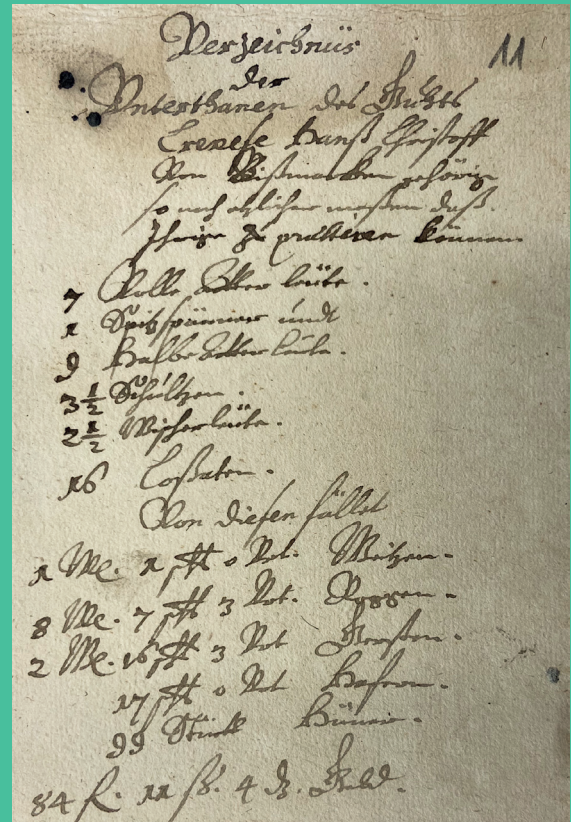 Verzeichnüs
11
der
Unterthanen des Guhts
Crevese Hanß Christoff
Von Bißmarcken gehörig
so noch etlicher maßen daß
Ihrige zu können
7 Volle Acker leüte.
1 Spitzspänner undt
9 Halbe Ackerleüte.
3½ Schultzen.
2½ leüte.
16 Coßaten.
Von diesen fället
1 W. 1 ßft 0 Vrt. Weitzen.
8 W. 7 ßft 3 Vrt. Roggen.
2 W. 16 ßft 3 Vrt Gersten.
17 ßft 0 Vrt Hafern.
99 Stück Hüner.
84 f. 11 ß. 4 d. Geld.